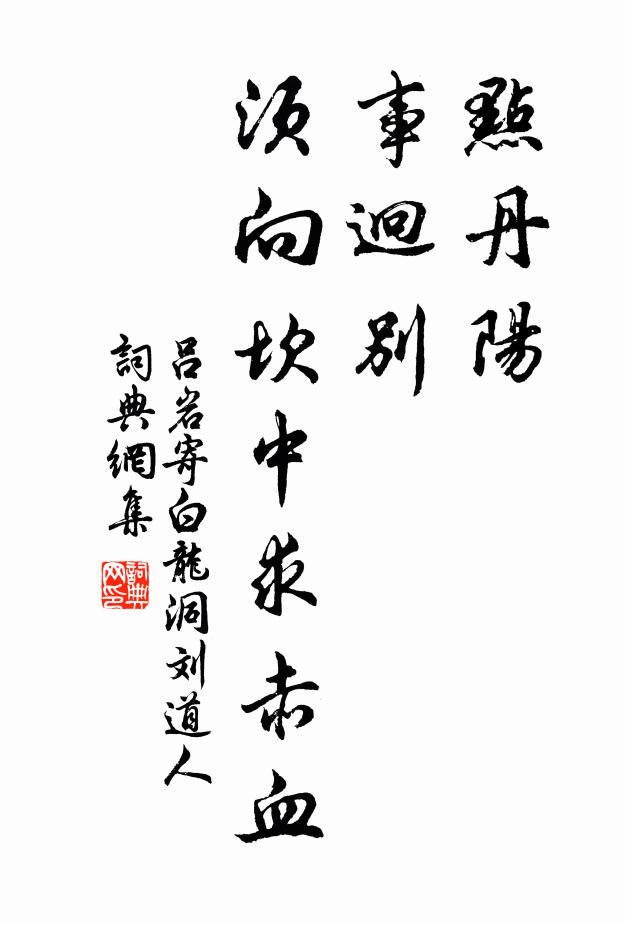 點丹陽
事迥別
須向坎中求赤血
吕岩寄白龍洞刘道人
詞典網集
詞典网印